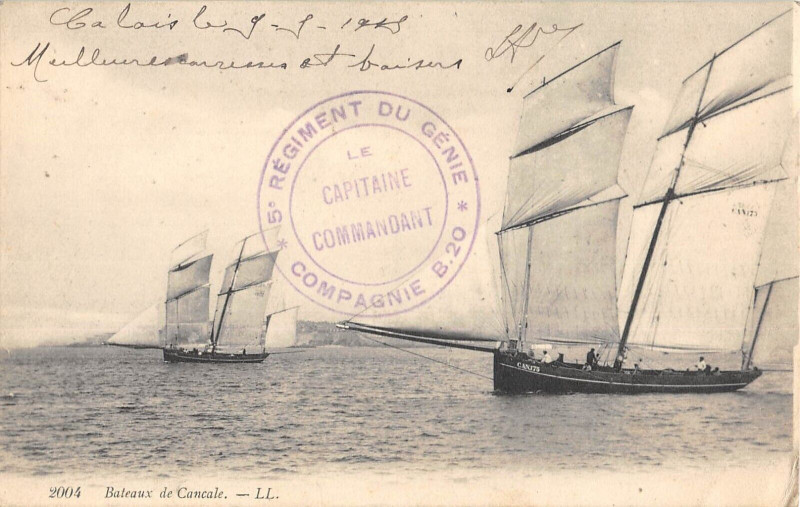 Calais le 9-9-1915
Meilleures caresses et baisers
5e RÉGIMENT DU GÉNIE
LE
CAPITAINE
COMMANDANT
* COMPAGNIE B.20 *
CAN175
CAN175
2004 Bateaux de Cancale. — LL.